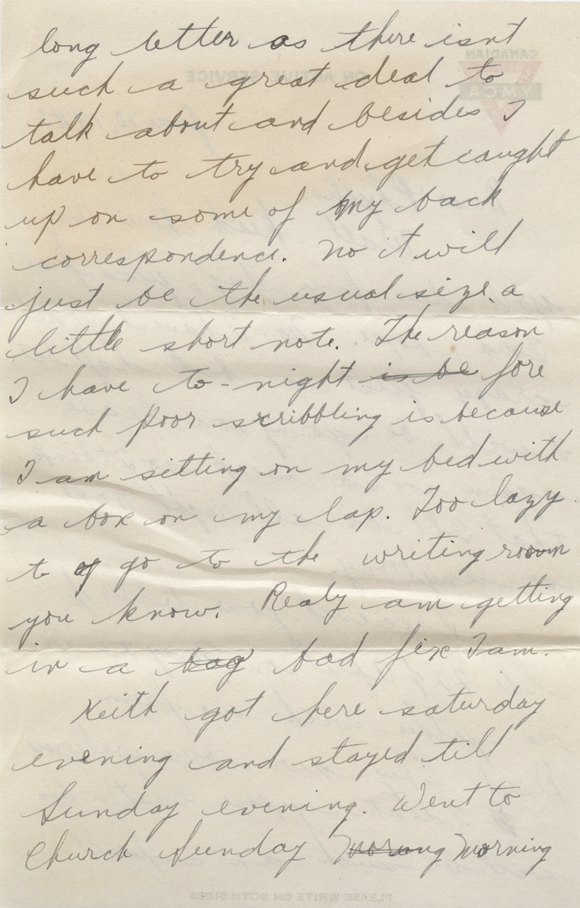 long letter as there isn't
such a great deal to
talk about and besides I
have to try and get caught
up on some of my back
correspondence. No it will
just be the usual size, a
little short note. The reason
I have to-night is be fore
such poor scribbling is because
I am sitting on my bed with
a box on my lap. Too lazy
to go to the writing room
you know. Realy am getting
in a bag bad fix I am.
Keith got here saturday
evening and stayed till
Sunday evening. Went to
Church Sunday Morning
CANADIAN
YMCA
ON ACTIVE SERVICE
PLEASE WRITE ON BOTH SIDES